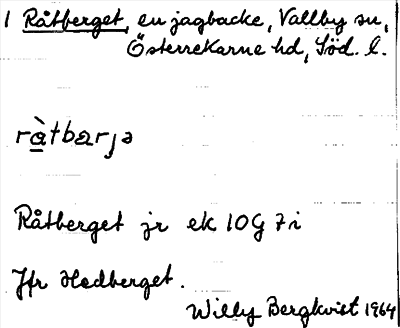 1 Råtberget, en jagbacke, Vallby sn,
Österrekarne hd, Söd. l.
ràtbarjə
Råtberget jr ek 10G 7i
Jfr Hedberget.
Willy Bergkvist 1964